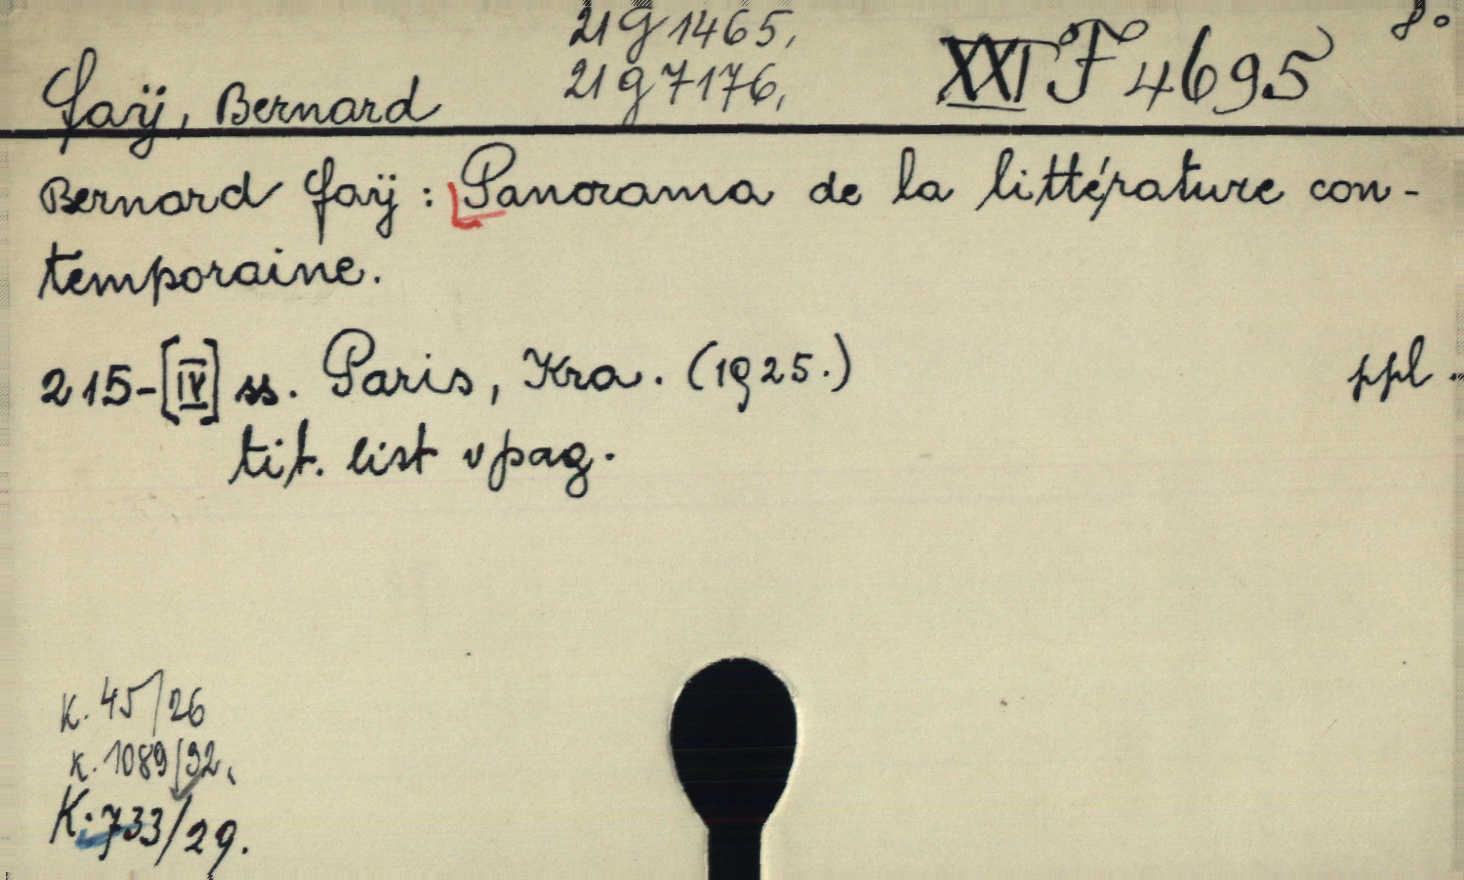 21 g 1465,
21 g 7176,
XXI F 4695
8°
Faÿ, Bernard
Bernard Faÿ: Panorama de la littérature con-
temporaine.
215-[IV] ss. Paris, Kra. (1925.)
ppl.
tit. list v pag.
K. 45/26
K. 1089/32.
K. 733/29.